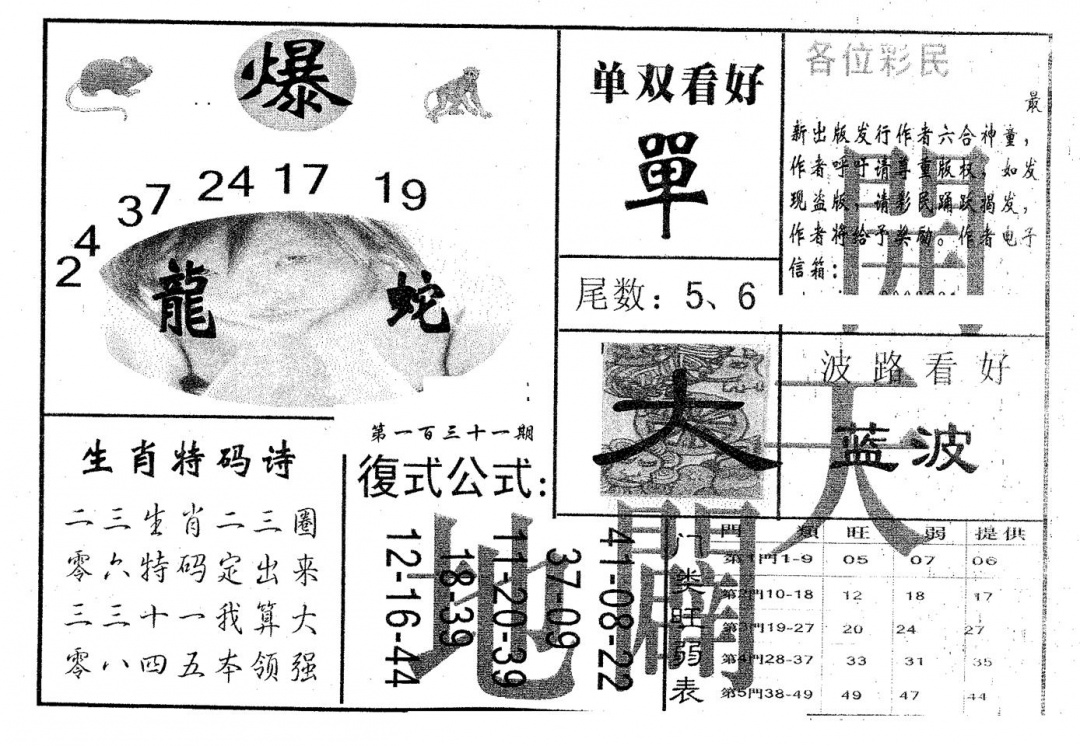 爆
2 4 37 24 17 19
龍 蛇
单双看好
單
尾数：5、6
各位彩民
最
新出版发行作者六合神童，
作者呼吁请尊重版权，如发
现盗版，请彩民踊跃揭发，
作者将给予奖励。作者电子
信箱：
開
天
地
闢
大
波路看好
蓝波
生肖特码诗
二三生肖二三圈
零六特码定出来
三三十一我算大
零八四五本领强
第一百三十一期
復式公式：
12-16-44
18-39
11-20-39
37-09
41-08-22
门类旺弱表
門 類 旺 弱 提供
第1門1-9 05 07 06
第2門10-18 12 18 17
第3門19-27 20 24 27
第4門28-37 33 31 35
第5門38-49 49 47 44